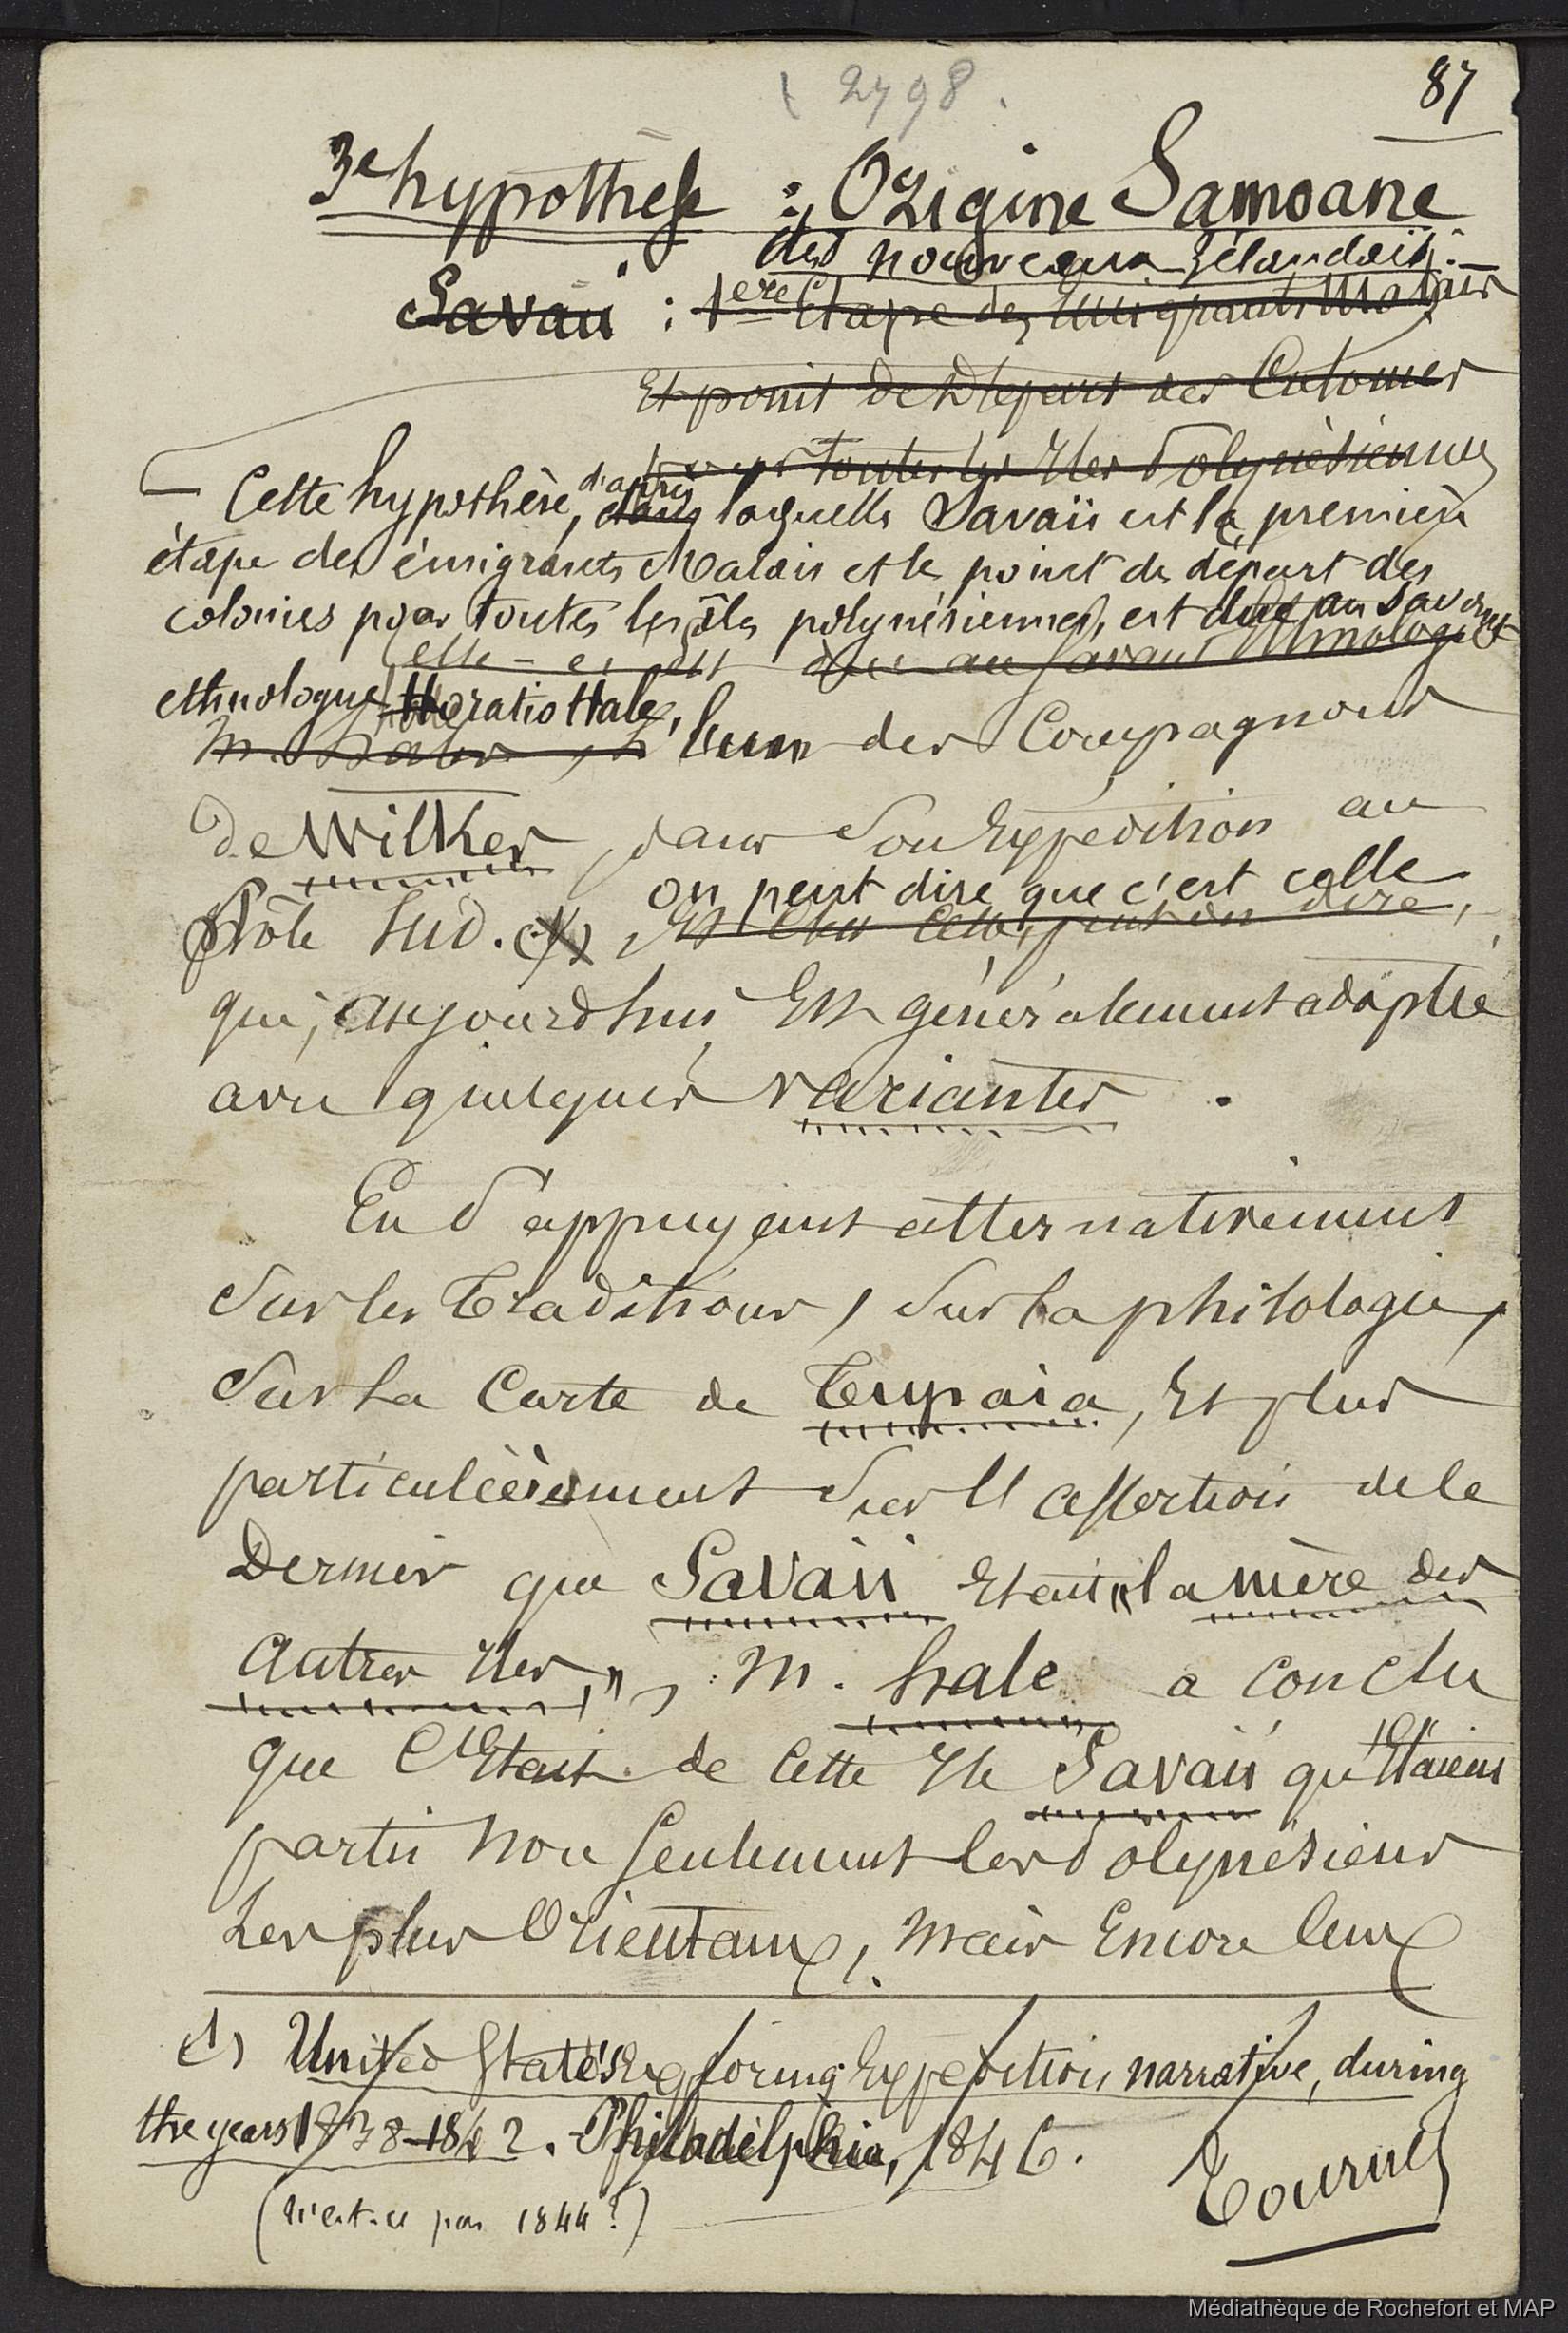 2798.
87
3e hypothèse : Origine Samoane
des nouveaux Zélandais. —
Savaii : 1ere Etape des Emigrants Malais
Et point de Départ des Colonies
toutes les Iles Polynésiennes
— Cette hypothèse, d'après dans laquelle Savaii est la première
étape des émigrants Malais et le point de départ des
colonies pour toutes les îles polynésiennes, est due au savant
Celle-ci est due au savant Ethnologue
ethnologue Horatio Hale,
M. Hale, l'un des Compagnons
de Wilkes, dans son Expédition au
on peut dire que c'est celle
Pôle Sud. (1) Et c'est celle, peut on dire,
qui, aujourd'hui, Est généralement adoptée
avec quelques variantes.
En s'appuyant alternativement
Sur les Traditions, Sur la philologie,
Sur la Carte de Tupaia, Et plus
particulièrement Sur l'assertion de ce
Dernier que Savaii Etait "la mère des
autres Iles,", M. hale a conclu
que C'Etait de Cette Ile Savaii qu'Etaient
partis non seulement les Polynésiens
Les plus Orientaux, mais Encore Ceux
(1) United States Exploring Expedition, narrative, during
the years 1838-1842. Philadelphia, 1846.
(n'est-ce pas 1844?)
Tournez
Médiathèque de Rochefort et MAP